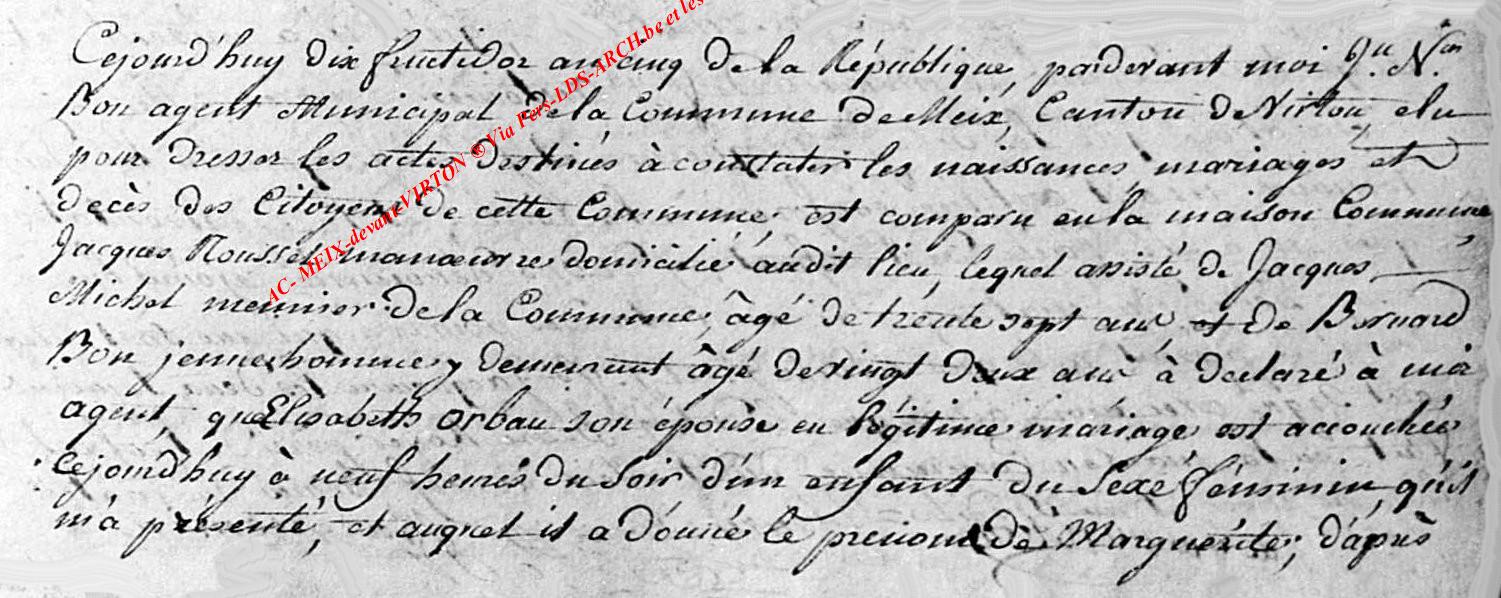 Cejourd'huy dix fructidor an cinq de la République pardevant moi Jn. Nas
Bon agent Municipal de la Commune de Meix, Canton de Virton, elu
pour dresser les actes destinés à constater les naissances, mariages et
decès des Citoyens de cette Commune, est comparu en la maison Commune,
Jacques Rousset manœuvre domicilié audit lieu, lequel assisté de Jacques
Michel meunier de la Commune, âgé de trente sept ans, et de Bernard
Bon jeune homme y demeurant âgé de vingt deux ans à declaré à moi
agent, que Elisabeth Orban son épouse en légitime mariage est accouchée
Cejourd'huy à neuf heures du soir d'un enfant du sexe féminin, qu'il
m'a présenté, et auquel il a donné le prenom de Marguerite, d'après
AC- MEIX-devant-VIRTON ® Via Pers-LDS-ARCH.be et les